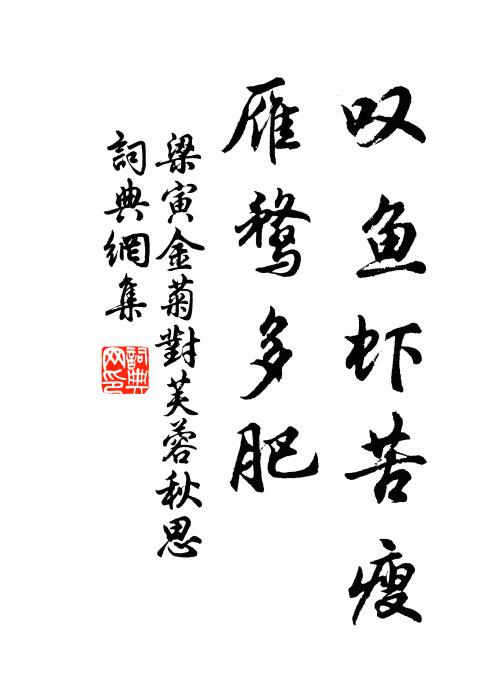 叹鱼虾苦瘦
雁鹜多肥
梁寅金菊對芙蓉秋思
詞典網集
詞典网印